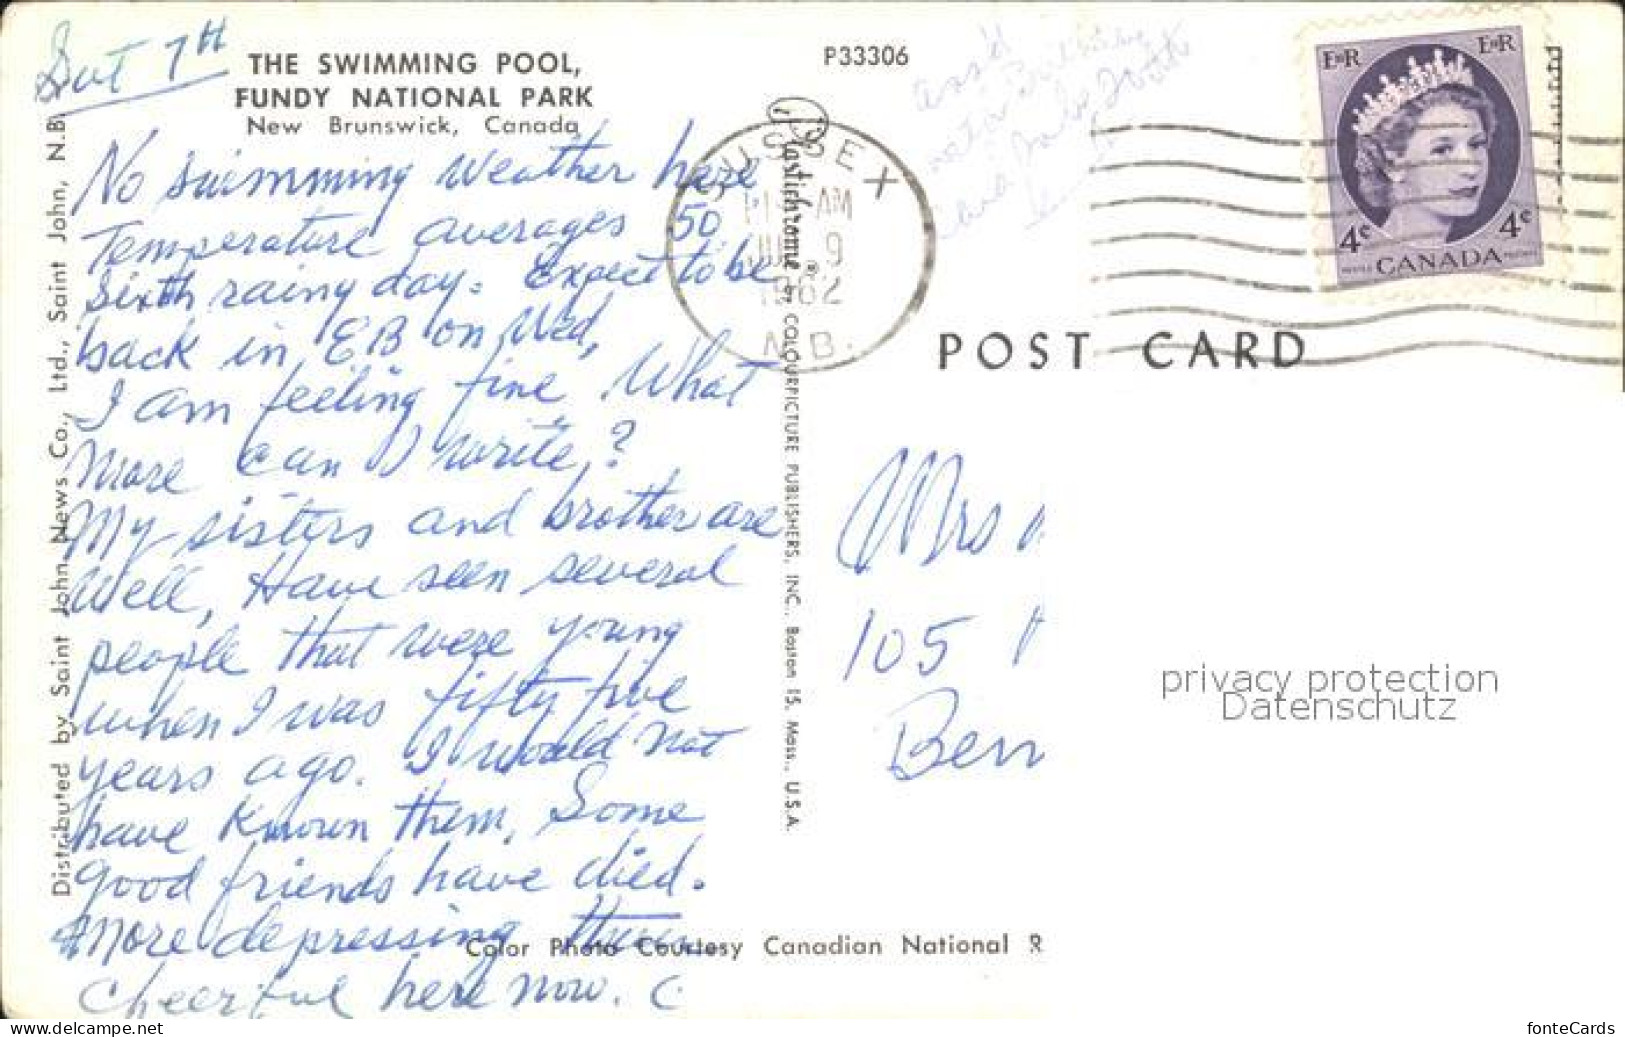 Sat 7th
THE SWIMMING POOL,
FUNDY NATIONAL PARK
New Brunswick, Canada
No swimming weather here
Temperature averages 50
Sixth rainy day. Expect to be
back in EB on Wed,
I am feeling fine. What
more can I write?
My sisters and brother are
well, Have seen several
people that were young
when I was fifty five
years ago. I would not
have known them, Some
good friends have died.
More depressing than
cheerful here now. C.
Distributed by Saint John News Co., Ltd., Saint John, N.B.
Plastichrome ® by COLOURPICTURE PUBLISHERS, INC., Boston 15, Mass., U.S.A.
Color Photo Courtesy Canadian National R
P33306
SUSSEX
AM
9
1962
N.B.
E II R
E II R
4¢
4¢
CANADA
POST CARD
Mrs
105
Ben
privacy protection
Datenschutz
www.delcampe.net
fonteCards